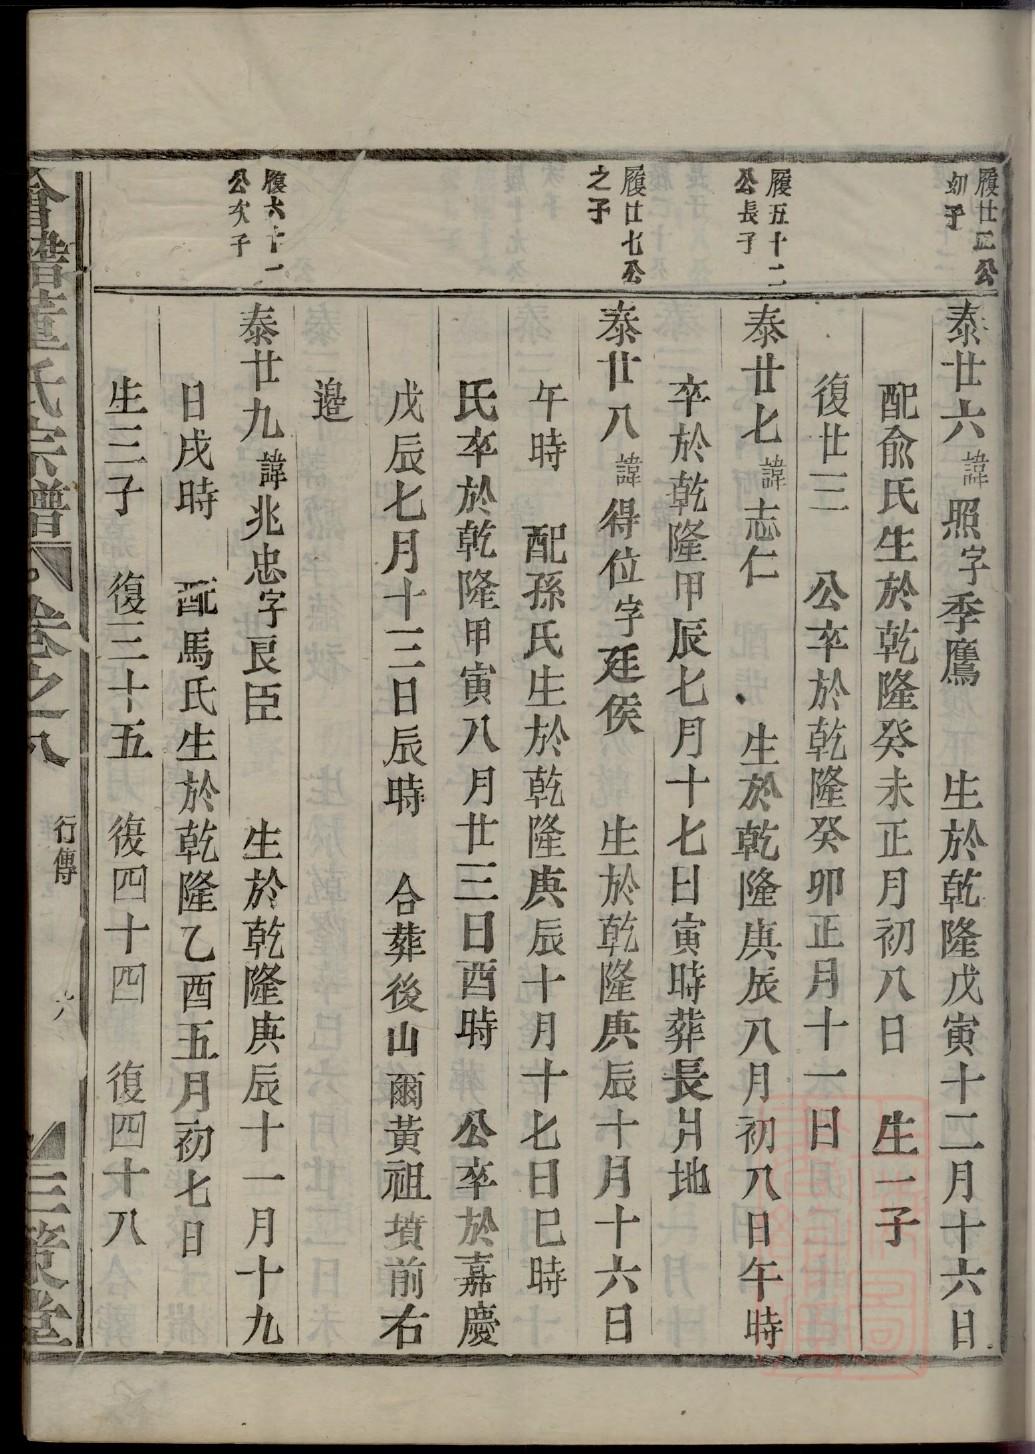 履廿五公
幼子
泰廿六諱照字季鷹 生於乾隆戊寅十二月十六日
配俞氏生於乾隆癸未正月初八日 生一子
復廿三 公卒於乾隆癸卯正月十一日
履五十二
公長子
泰廿七諱志仁 生於乾隆庚辰八月初八日午時
卒於乾隆甲辰七月十七日寅時葬長爿地
履廿七公
之子
泰廿八諱得位字廷侯 生於乾隆庚辰十月十六日
午時 配孫氏生於乾隆庚辰十月十七日巳時
氏卒於乾隆甲寅八月廿三日酉時 公卒於嘉慶
戊辰七月十三日辰時 合葬後山爾黃祖墳前右
邉
履六十一
公次子
泰廿九諱兆忠字良臣 生於乾隆庚辰十一月十九
日戌時 配馬氏生於乾隆乙酉五月初七日
生三子 復三十五 復四十四 復四十八
會稽董氏宗譜 卷之八 行傳 六 三策堂